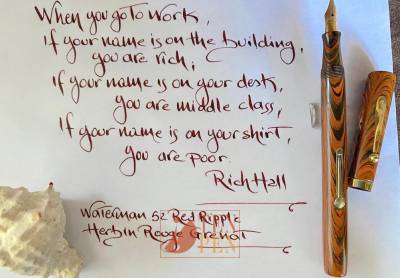 When you go To Work,
If your name is on the building,
you are rich;
If your name is on your desk,
you are middle class,
If your name is on your shirt,
you are poor.
Rich Hall
Waterman 52 Red Ripple
Herbin Rouge Grenat
PEN